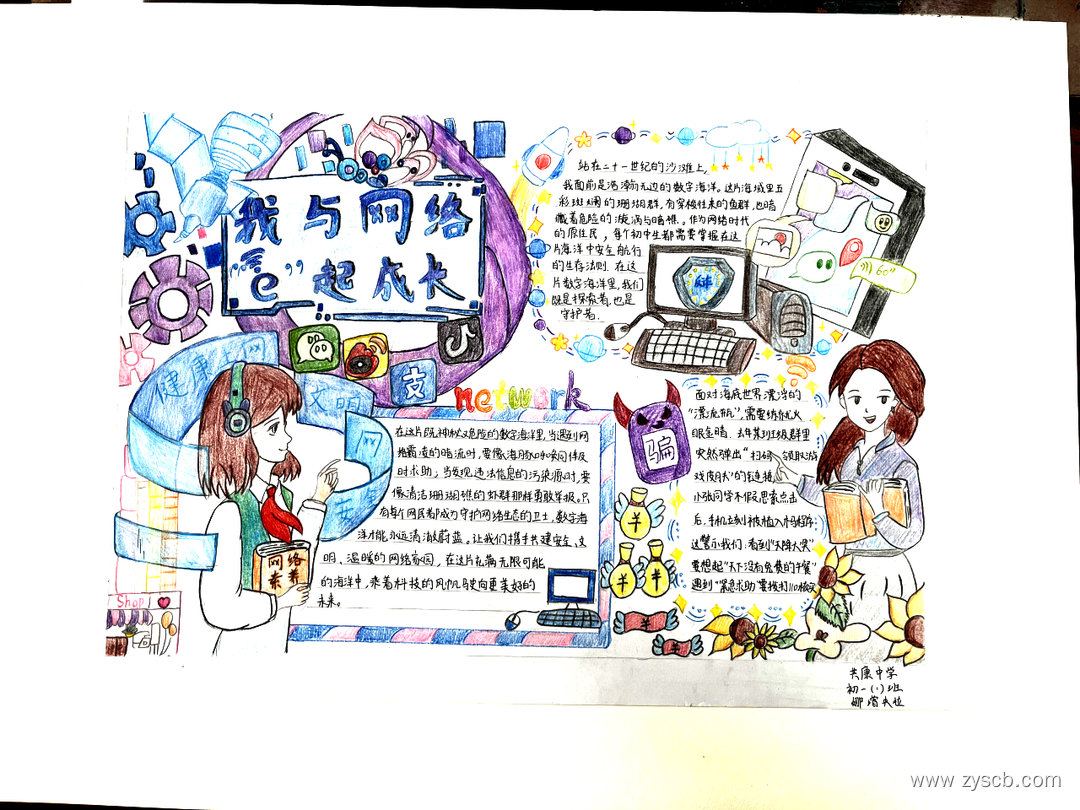 我与网络
“e”起成长
站在二十一世纪的沙滩上,
我面前是浩瀚无边的数字海洋。这片海域里五
彩斑斓的珊瑚群,有穿梭往来的鱼群,也暗
藏着危险的漩涡与暗礁。作为网络时代
的原住民,每个初中生都需要掌握在这
片海洋中安全航行
的生存法则.在这
片数字海洋里,我们
既是探索者,也是
守护者.
60"
健康上网
文明
网
支
network
在这片既神秘又危险的数字海洋里,当遇到网
络霸凌的暗流时,要像海豚呼唤同伴及
时求助;当发现违法信息的污染源时,要
像清洁珊瑚礁的虾群那样勇敢举报。只
有每个网民都成为守护网络生态的卫士,数字海
洋才能永远清澈蔚蓝。让我们携手共建安全、文
明、温暖的网络家园,在这片充满无限可能
的海洋中,乘着科技的风帆驶向更美好的
未来。
网络
素养
Shop
骗
面对海底世界漂浮的
“漂流瓶”,需要练就火
眼金睛.去年某班级群里
突然弹出“扫码领取游
戏皮肤”的链接,
小张同学不假思索点击
后,手机立刻被植入木马程序
这警示我们:看到“天降大奖”
要想起“天下没有免费的午餐”
遇到“紧急求助”要拨打110核实
共康中学
初一(1)班
www.zyscb.com